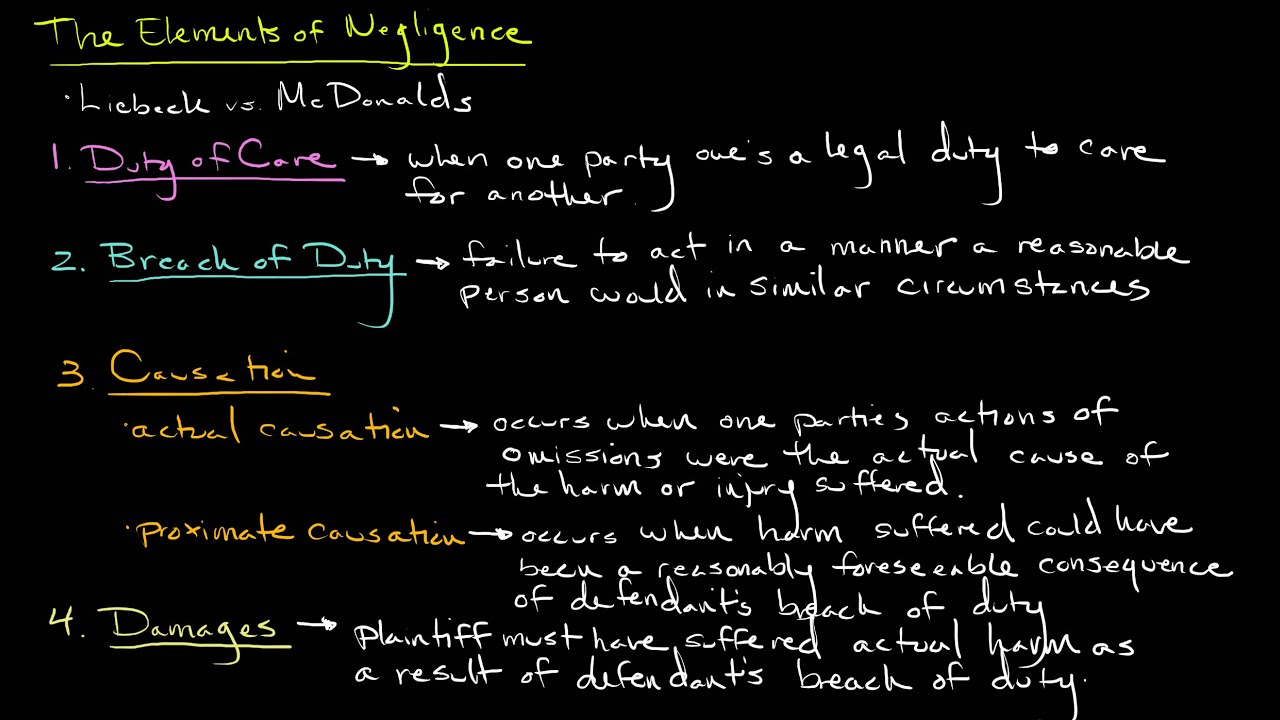 The Elements of Negligence
· Liebeck vs. McDonalds
1. Duty of Care → when one party owe's a legal duty to care
for another.
2. Breach of Duty → failure to act in a manner a reasonable
person would in similar circumstances
3. Causation
· actual causation → occurs when one parties actions of
omissions were the actual cause of
the harm or injury suffered.
· proximate causation → occurs when harm suffered could have
been a reasonably foreseeable consequence
of defendant's breach of duty
4. Damages → plaintiff must have suffered actual harm as
a result of defendant's breach of duty.